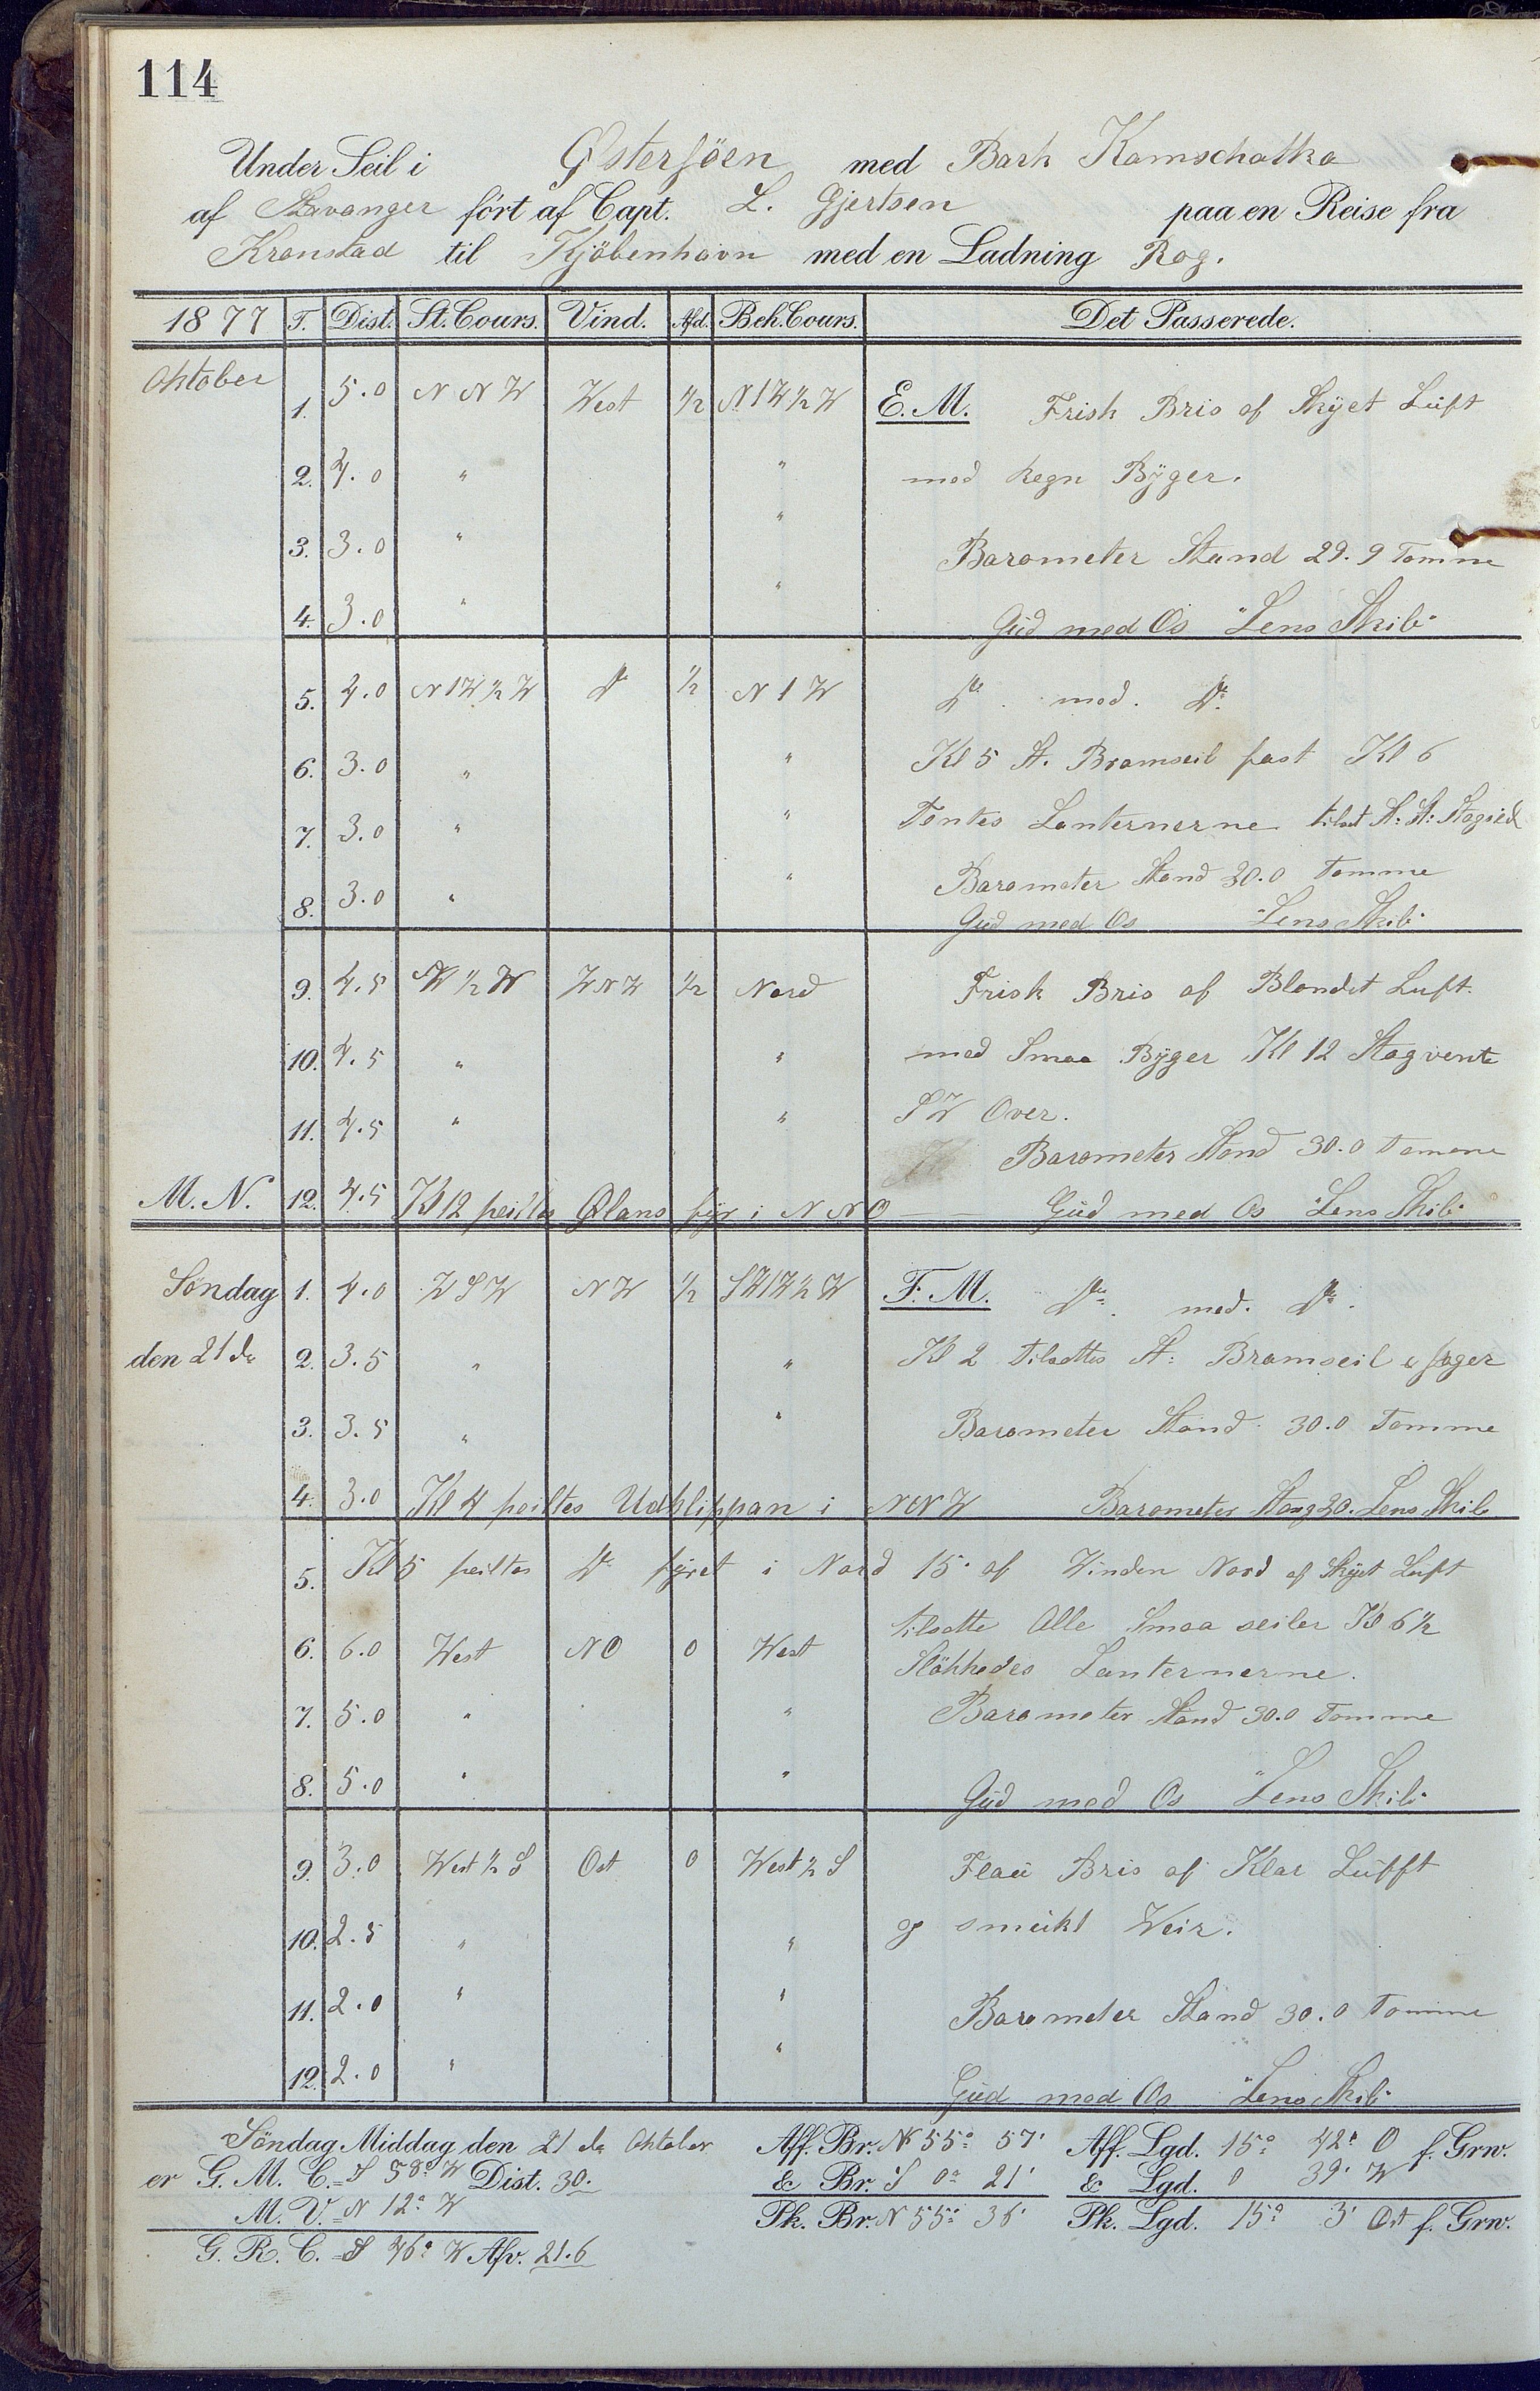 114
Under Seil i Østersöen med Bark Kamschatka
af Stavanger fört af Capt. L. Gjertsen paa en Reise fra
Kronstad til Kjöbenhavn med en Ladning Rog.
1877 T. Dist. St. Cours. Vind. Afd. Beh. Cours. Det Passerede.
Oktober 1. 5.0 N N W West 1/2 N 1 W 1/2 W E. M. Frisk Bris af Skyet Luft
2. 4.0 " " med Regn Byger.
3. 3.0 " " Barometer Stand 29.9 Tomme
4. 3.0 " " Gud med Os "Lens Skib"
5. 4.0 N 1 W 1/2 W Do 1/2 N 1 W Do med. Do
6. 3.0 " " Kl 5 St. Bramseil fast Kl 6
7. 3.0 " " Tentes Lanternerne tilsat St: St: Stagseil
8. 3.0 " " Barometer Stand 30.0 Tomme
Gud med Os "Lens Skib"
9. 4.5 N 1/2 W WNW 1/2 Nord Frisk Bris af Blandet Luft
10. 4.5 " " med Smaa Byger Kl 12 Stagvente
11. 4.5 " " SW Over.
Barometer Stand 30.0 Tomme
M. N. 12. 4.5 Kl 12 peiltes Ølans fyr i N N O — Gud med Os "Lens Skib"
Söndag 1. 4.0 W S W N W 1/2 SW1W 1/2 W F. M. Do. med. Do.
den 21 de 2. 3.5 " " Kl 2 Tilsattes St: Bramseil & jager
3. 3.5 " " Barometer Stand 30.0 Tomme
4. 3.0 Kl 4 peiltes Udklippan i NNW Barometer Stand 30. Lens Skib
5. Kl 5 peiltes Do fyret i Nord 15' af Vinden Nord af Skyet Luft
tilsatte Alle Smaa seiler Kl 6 1/2
6. 6.0 West NO 0 West Slökkedes Lanternerne.
7. 5.0 " " Barometer Stand 30.0 Tomme
8. 5.0 " " Gud med Os "Lens Skib"
9. 3.0 West 1/2 S Ost 0 West 1/2 S Flau Bris af Klar Lufft
10. 2.5 " " og smukt Weir.
11. 2.0 " " Barometer Stand 30.0 Tomme
12. 2.0 " " Gud med Os "Lens Skib"
Söndag Middag den 21 de Oktober Aff. Br. N 55° 57' Aff. Lgd. 15° 42' O f. Grw.
er G. M. C. = S 58° W Dist. 30. & Br. S 0° 21' & Lgd. 0 39' W
M. V. = N 12° W Pk. Br. N 55° 36' Pk. Lgd. 15° 3' Ost f. Grw.
G. R. C. = S 46° W Afv. 21.6